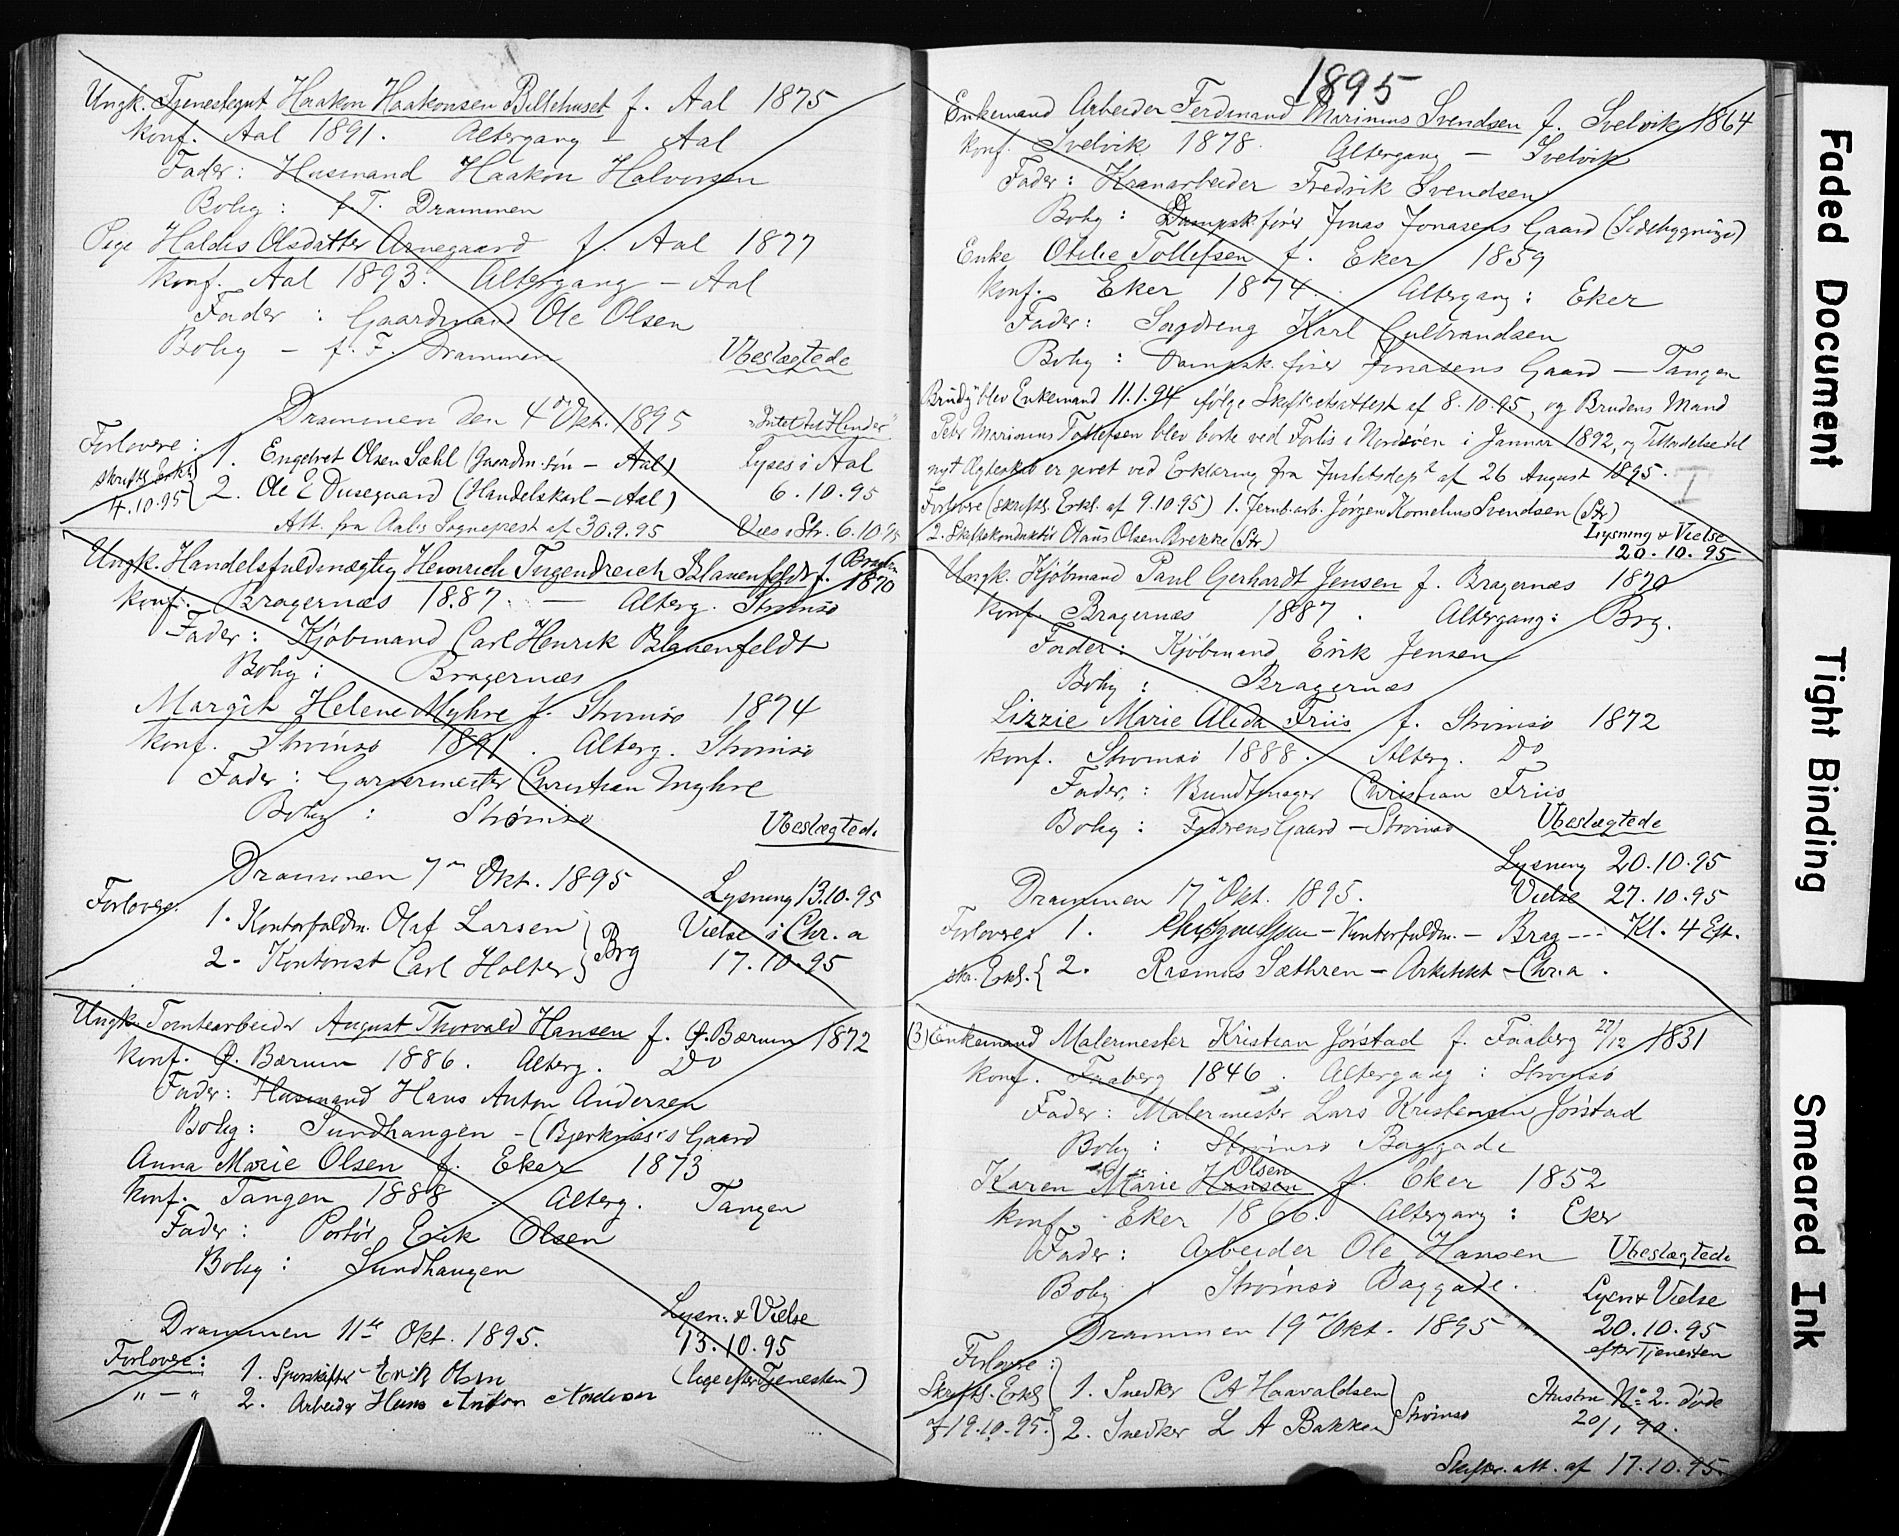 Ungk. Tjenestegut Haakon Haakonsen Billehuset f. Aal 1875
Konf. Aal 1891. Altergang — Aal
Fader: Husmand Haakon Halvorsen
Bolig: f. T. Drammen
Pige Haldis Olsdatter Arnegaard f. Aal 1877
Konf. Aal 1893. Altergang — Aal
Fader: Gaardmand Ole Olsen
Bolig — f. T. Drammen
Ubeslægtede
Drammen den 4 Okt. 1895
Intet til Hinder
Forlovere: 1. Engebret Olsen Sæhl (Gaardm. søn — Aal)
Lyses i Aal
6.10.95
skriftl. Erkl. 4.10.95 2. Ole E Dusegaard (Handelskarl — Aal)
Att. fra Aals Sognepræst af 30.9.95
Vies i Str. 6.10.95
Ungk. Handelsfuldmægtig Heinrich Tugendreich Blauenfeldt f. Bragen 1870
Konf. Bragernæs 1887. — Alterg. Strømsø
Fader: Kjøbmand Carl Henrik Blauenfeldt
Bolig: Bragernæs
Margit Helene Myhre f. Strømsø 1874
Konf. Strømsø 1891. Alterg. Strømsø
Fader: Garvermester Christian Myhre
Bolig: Strømsø
Ubeslægtede
Drammen 7 Okt. 1895
Lysning 13.10.95
Forlovere. 1. Kontorfuldm. Olaf Larsen
Vielse i Chr.a
2. Kontorist Carl Holter Brg
17.10.95
Ungk. Tomtearbeider August Thorvald Hansen f. Ø. Bærum 1872
Konf. Ø. Bærum 1886. Alterg. Do
Fader: Husmand Hans Anton Andersen
Bolig: Sundhaugen — (Bjerknæs's Gaard
Anna Marie Olsen f. Eker 1873
Konf. Tangen 1888. Alterg. Tangen
Fader: Portør Erik Olsen
Bolig: Sundhaugen
Lysn. & Vielse
Drammen 11te Okt. 1895.
13.10.95
Forlovere: 1. Sporskifter Erik Olsen
(lige efter Tjenesten)
" — " 2. Arbeider Hans Anton Andersen
1895
Enkemand Arbeider Ferdinand Marinius Svendsen f. Svelvik 1864
Konf. Svelvik 1878. Altergang — Svelvik
Fader: Kranarbeider Fredrik Svendsen
Bolig: Dampsk.fører Jonas Jonasens Gaard (Sidebygning)
Enke Otilie Tollefsen f. Eker 1859
Konf. Eker 1874. Altergang: Eker
Fader: Sagdreng Karl Gulbrandsen
Bolig: Dampsk. fører Jonasens Gaard — Tangen
Brudg. blev Enkemand 11.1.94 ifølge Skifteretsattest af 8.10.95, og Brudens Mand
Peter Marinius Tollefsen blev borte ved Forlis i Nordsøen i Januar 1892, og Tilladelse til
nyt Ægteskab er givet ved Erklæring fra Justitsdept af 26 August 1895.
Forlovere (skriftl. Erkl. af 9.10.95) 1. Jernb.arb. Jørgen Kornelius Svendsen (Str)
2. Skiftekonduktør Olaus Olsen Brekke (Str)
Lysning & Vielse
20.10.95
Ungk. Kjøbmand Paul Gerhardt Jensen f. Bragernæs 1870
Konf. Bragernæs 1887. Altergang: Brg.
Fader: Kjøbmand Erik Jensen
Bolig: Bragernæs
Lizzie Marie Alida Friis f. Strømsø 1872
Konf. Strømsø 1888. Alterg. Do
Fader: Bundtmager Christian Friis
Bolig: Faderens Gaard — Strømsø
Ubeslægtede
Lysning 20.10.95
Drammen 17 Okt. 1895.
Vielse 27.10.95
Forlovere 1. — Kontorfuldm. — Brag — Kl. 4 Eft.
skr. Erkl. 2. Rasmus Sæthren — Arkitekt — Chr.a.
(3) Enkemand Malermester Kristian Jørstad f. Faaberg 27/12 1831
Konf. Faaberg 1846. Altergang: Strømsø
Fader: Malermester Lars Kristensen Jørstad
Bolig: Strømsø Baggade
Olsen
Karen Marie Hansen f. Eker 1852
Konf. Eker 1866. Altergang: Eker
Fader: Arbeider Ole Hansen
Ubeslægtede
Bolig: Strømsø Baggade.
Lysn & Vielse
Drammen 19 Okt. 1895
20.10.95
efter Tjenesten
Forlovere:
Skriftl. Erkl. 1. Snedker C A Haavaldsen
Hustru No 2. døde
af 19.10.95. 2. Snedker L A Bakken Strømsø
20/1 90.
Skifter. att. af 17.10.95.
Faded Document
Tight Binding
Smeared Ink